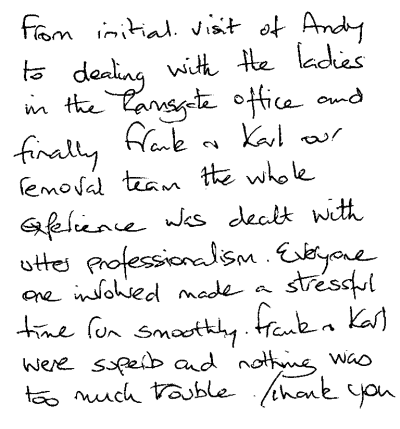 From initial visit of Andy
to dealing with the ladies
in the Ramsgate office and
finally Frank & Karl our
removal team the whole
experience was dealt with
utter professionalism. Everyone
one involved made a stressful
time run smoothly. Frank & Karl
were superb and nothing was
too much trouble. Thank you